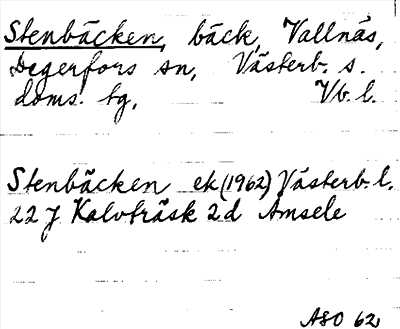 Stenbäcken, bäck, Vallnäs,
Degerfors sn, Västerb. s.
doms. tg, Vb. l.
Stenbäcken ek (1962) Västerb. l.
22 J Kalvträsk 2 d Amsele
ASO 62